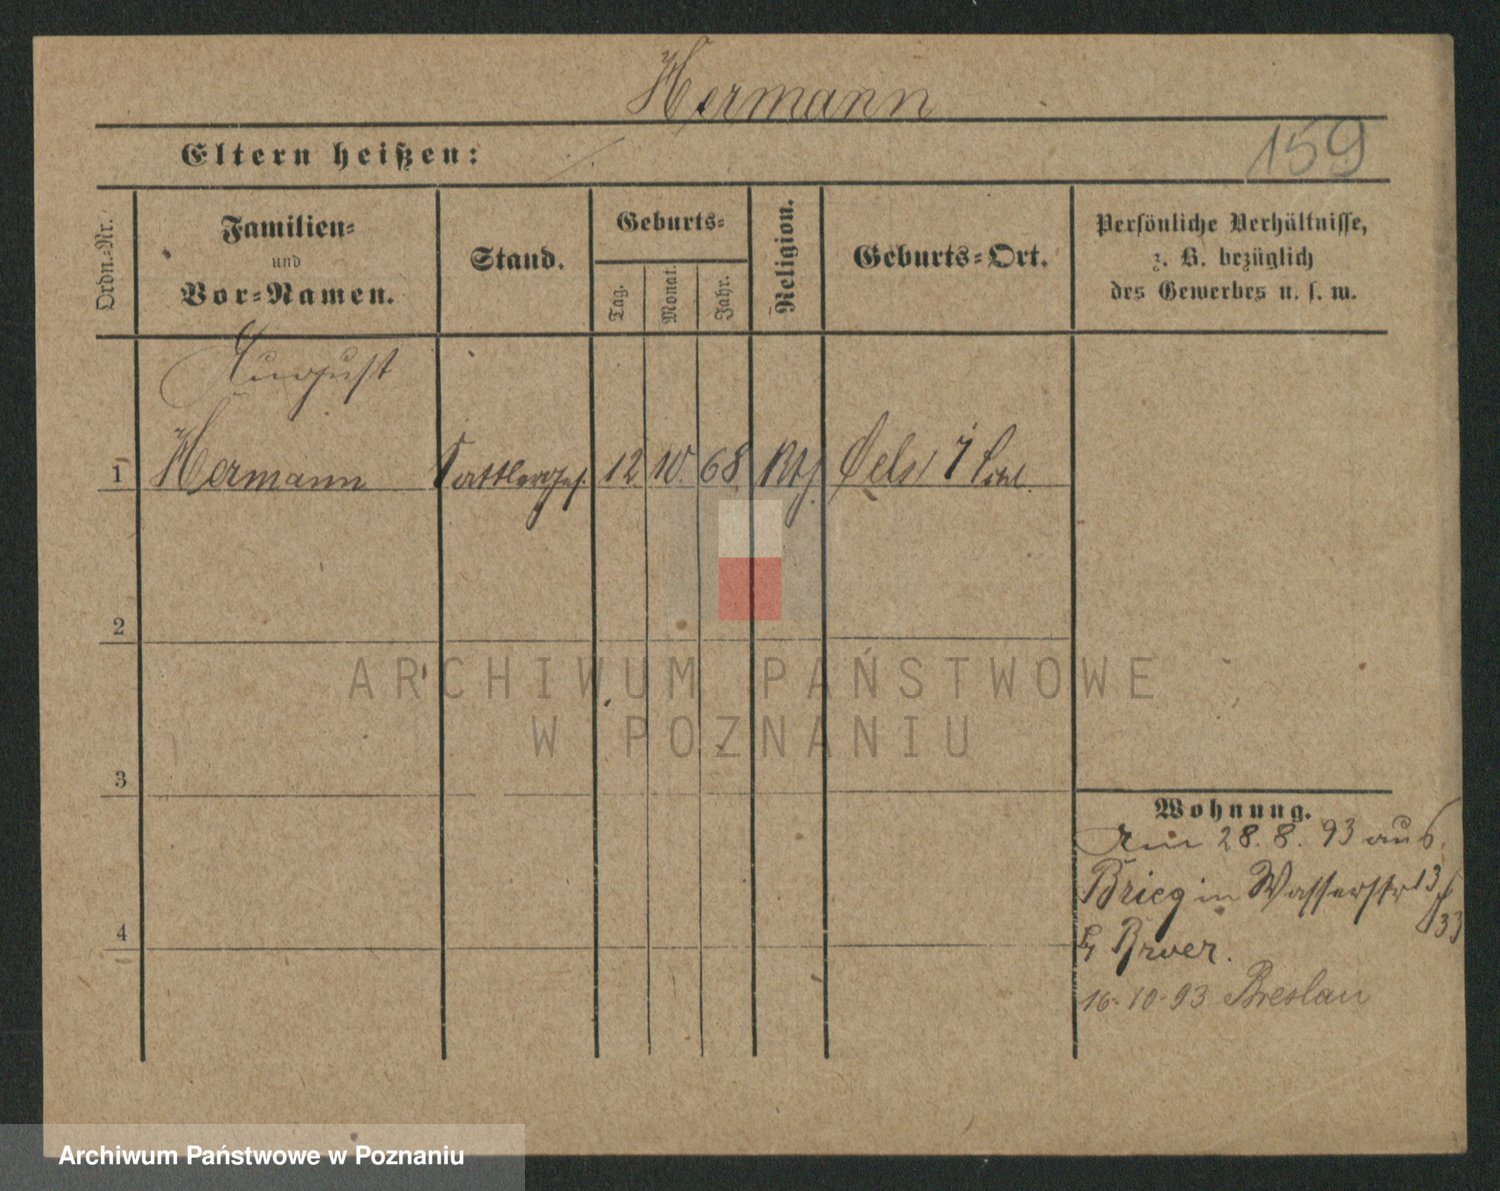 Hermann
159
Eltern heißen:
Ordn.-Nr.
Familien-
und
Vor-Namen.
Stand.
Geburts-
Tag.
Monat.
Jahr.
Religion.
Geburts-Ort.
Persönliche Verhältnisse,
z. B. bezüglich
des Gewerbes u. s. w.
August
1 Hermann Sattlerges. 12 10. 68 Kth Oels i Schl.
2
3
4
Wohnung.
Am 28.8.93 aus
Brieg in Wasserstr 13
33
16.10.93 Breslau
ARCHIWUM PAŃSTWOWE
W POZNANIU
Archiwum Państwowe w Poznaniu